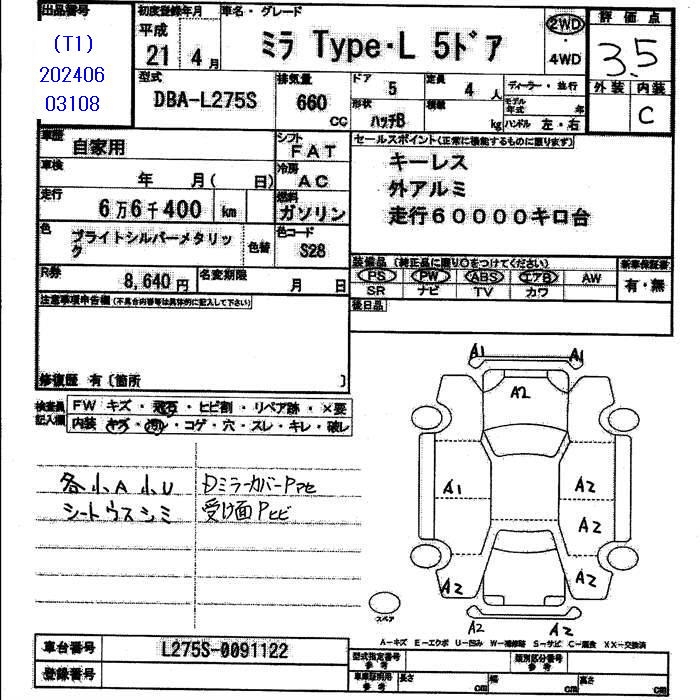 出品番号 初度登録年月 車名・グレード 評価点
(T1) 平成 ミラ Type・L 5ドア 2WD・4WD 3.5
202406 21 4月
03108 型式 排気量 ドア 5 定員 4人 ディーラー・並行 外装 内装
DBA-L275S 660 CC 形状 ハッチB 積載 kg モデル年式 年 C
ハンドル 左・右
車歴 自家用 シフト FAT セールスポイント(正常に機能するものに限ります)
車検 年 月( 日) 冷房 AC キーレス
走行 6万6千400 km 燃料 ガソリン 外アルミ
走行60000キロ台
色 ブライトシルバーメタリック 色替 色コード S28
R券 8,640円 名変期限 月 日
装備品(純正品に限り○をつけてください) 新車保証書
PS PW ABS エアB AW 有・無
SR ナビ TV カワ
注意事項申告欄(不具合内容等は具体的に記入して下さい) 後日品
修復歴 有〔箇所 〕
検査員記入欄 FW キズ・飛石・ヒビ割・リペア跡・×要
内装 キズ・汚レ・コゲ・穴・スレ・キレ・破レ
各小A小U Dミラーカバー
シートウスシミ 受け面Pヒビ
A1 A1
A2
A1 A2
A2
A2 A2
A2 A2
スペア
A-キズ E-エクボ U-凹み W-補修跡 S-サビ C-腐食 XX-交換済
車台番号 L275S-0091122 型式指定番号 参考 類別区分番号 参考
登録番号 車庫証明用 参考 長さ cm 幅 cm 高さ cm